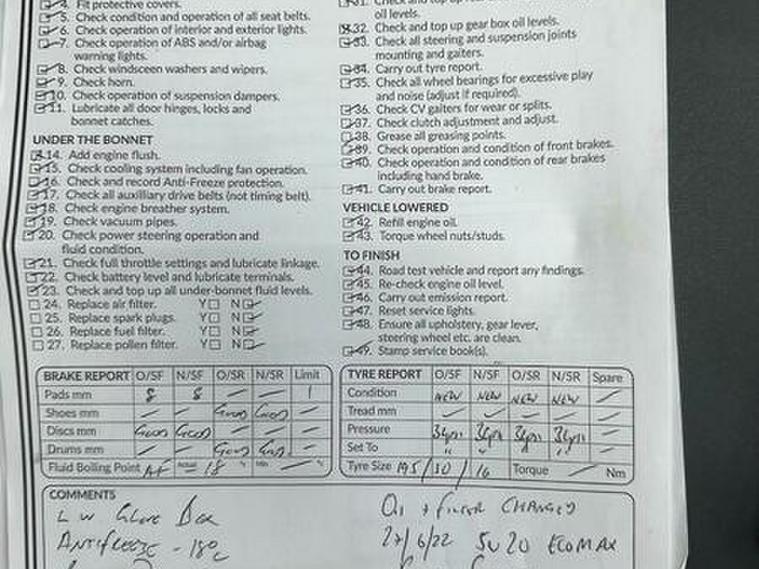 4. Fit protective covers.
5. Check condition and operation of all seat belts.
6. Check operation of interior and exterior lights.
7. Check operation of ABS and/or airbag
warning lights.
8. Check windsceen washers and wipers.
9. Check horn.
10. Check operation of suspension dampers.
11. Lubricate all door hinges, locks and
bonnet catches.
UNDER THE BONNET
14. Add engine flush.
15. Check cooling system including fan operation.
16. Check and record Anti-Freeze protection.
17. Check all auxilliary drive belts (not timing belt).
18. Check engine breather system.
19. Check vacuum pipes.
20. Check power steering operation and
fluid condition.
21. Check full throttle settings and lubricate linkage.
22. Check battery level and lubricate terminals.
23. Check and top up all under-bonnet fluid levels.
24. Replace air filter. Y N
25. Replace spark plugs. Y N
26. Replace fuel filter. Y N
27. Replace pollen filter. Y N
31. Check and top up
oil levels.
32. Check and top up gear box oil levels.
33. Check all steering and suspension joints
mounting and gaiters.
34. Carry out tyre report.
35. Check all wheel bearings for excessive play
and noise (adjust if required).
36. Check CV gaiters for wear or splits.
37. Check clutch adjustment and adjust.
38. Grease all greasing points.
39. Check operation and condition of front brakes.
40. Check operation and condition of rear brakes
including hand brake.
41. Carry out brake report.
VEHICLE LOWERED
42. Refill engine oil.
43. Torque wheel nuts/studs.
TO FINISH
44. Road test vehicle and report any findings.
45. Re-check engine oil level.
46. Carry out emission report.
47. Reset service lights.
48. Ensure all upholstery, gear lever,
steering wheel etc. are clean.
49. Stamp service book(s).
BRAKE REPORT O/SF N/SF O/SR N/SR Limit
Pads mm 8 8 — — 1
Shoes mm — — Good Good —
Discs mm Good Good — — —
Drums mm — — Good Good —
Fluid Boiling Point AF Actual = 18 °c Min — °c
TYRE REPORT O/SF N/SF O/SR N/SR Spare
Condition NEW NEW NEW NEW —
Tread mm
Pressure 34psi 34psi 34psi 34psi —
Set To " " " " —
Tyre Size 195/50/16 Torque — Nm
COMMENTS
Glove Box
ANTIFREEZE -18°c
Oil + FILTER CHANGED
27/6/22 5W20 ECOMAX